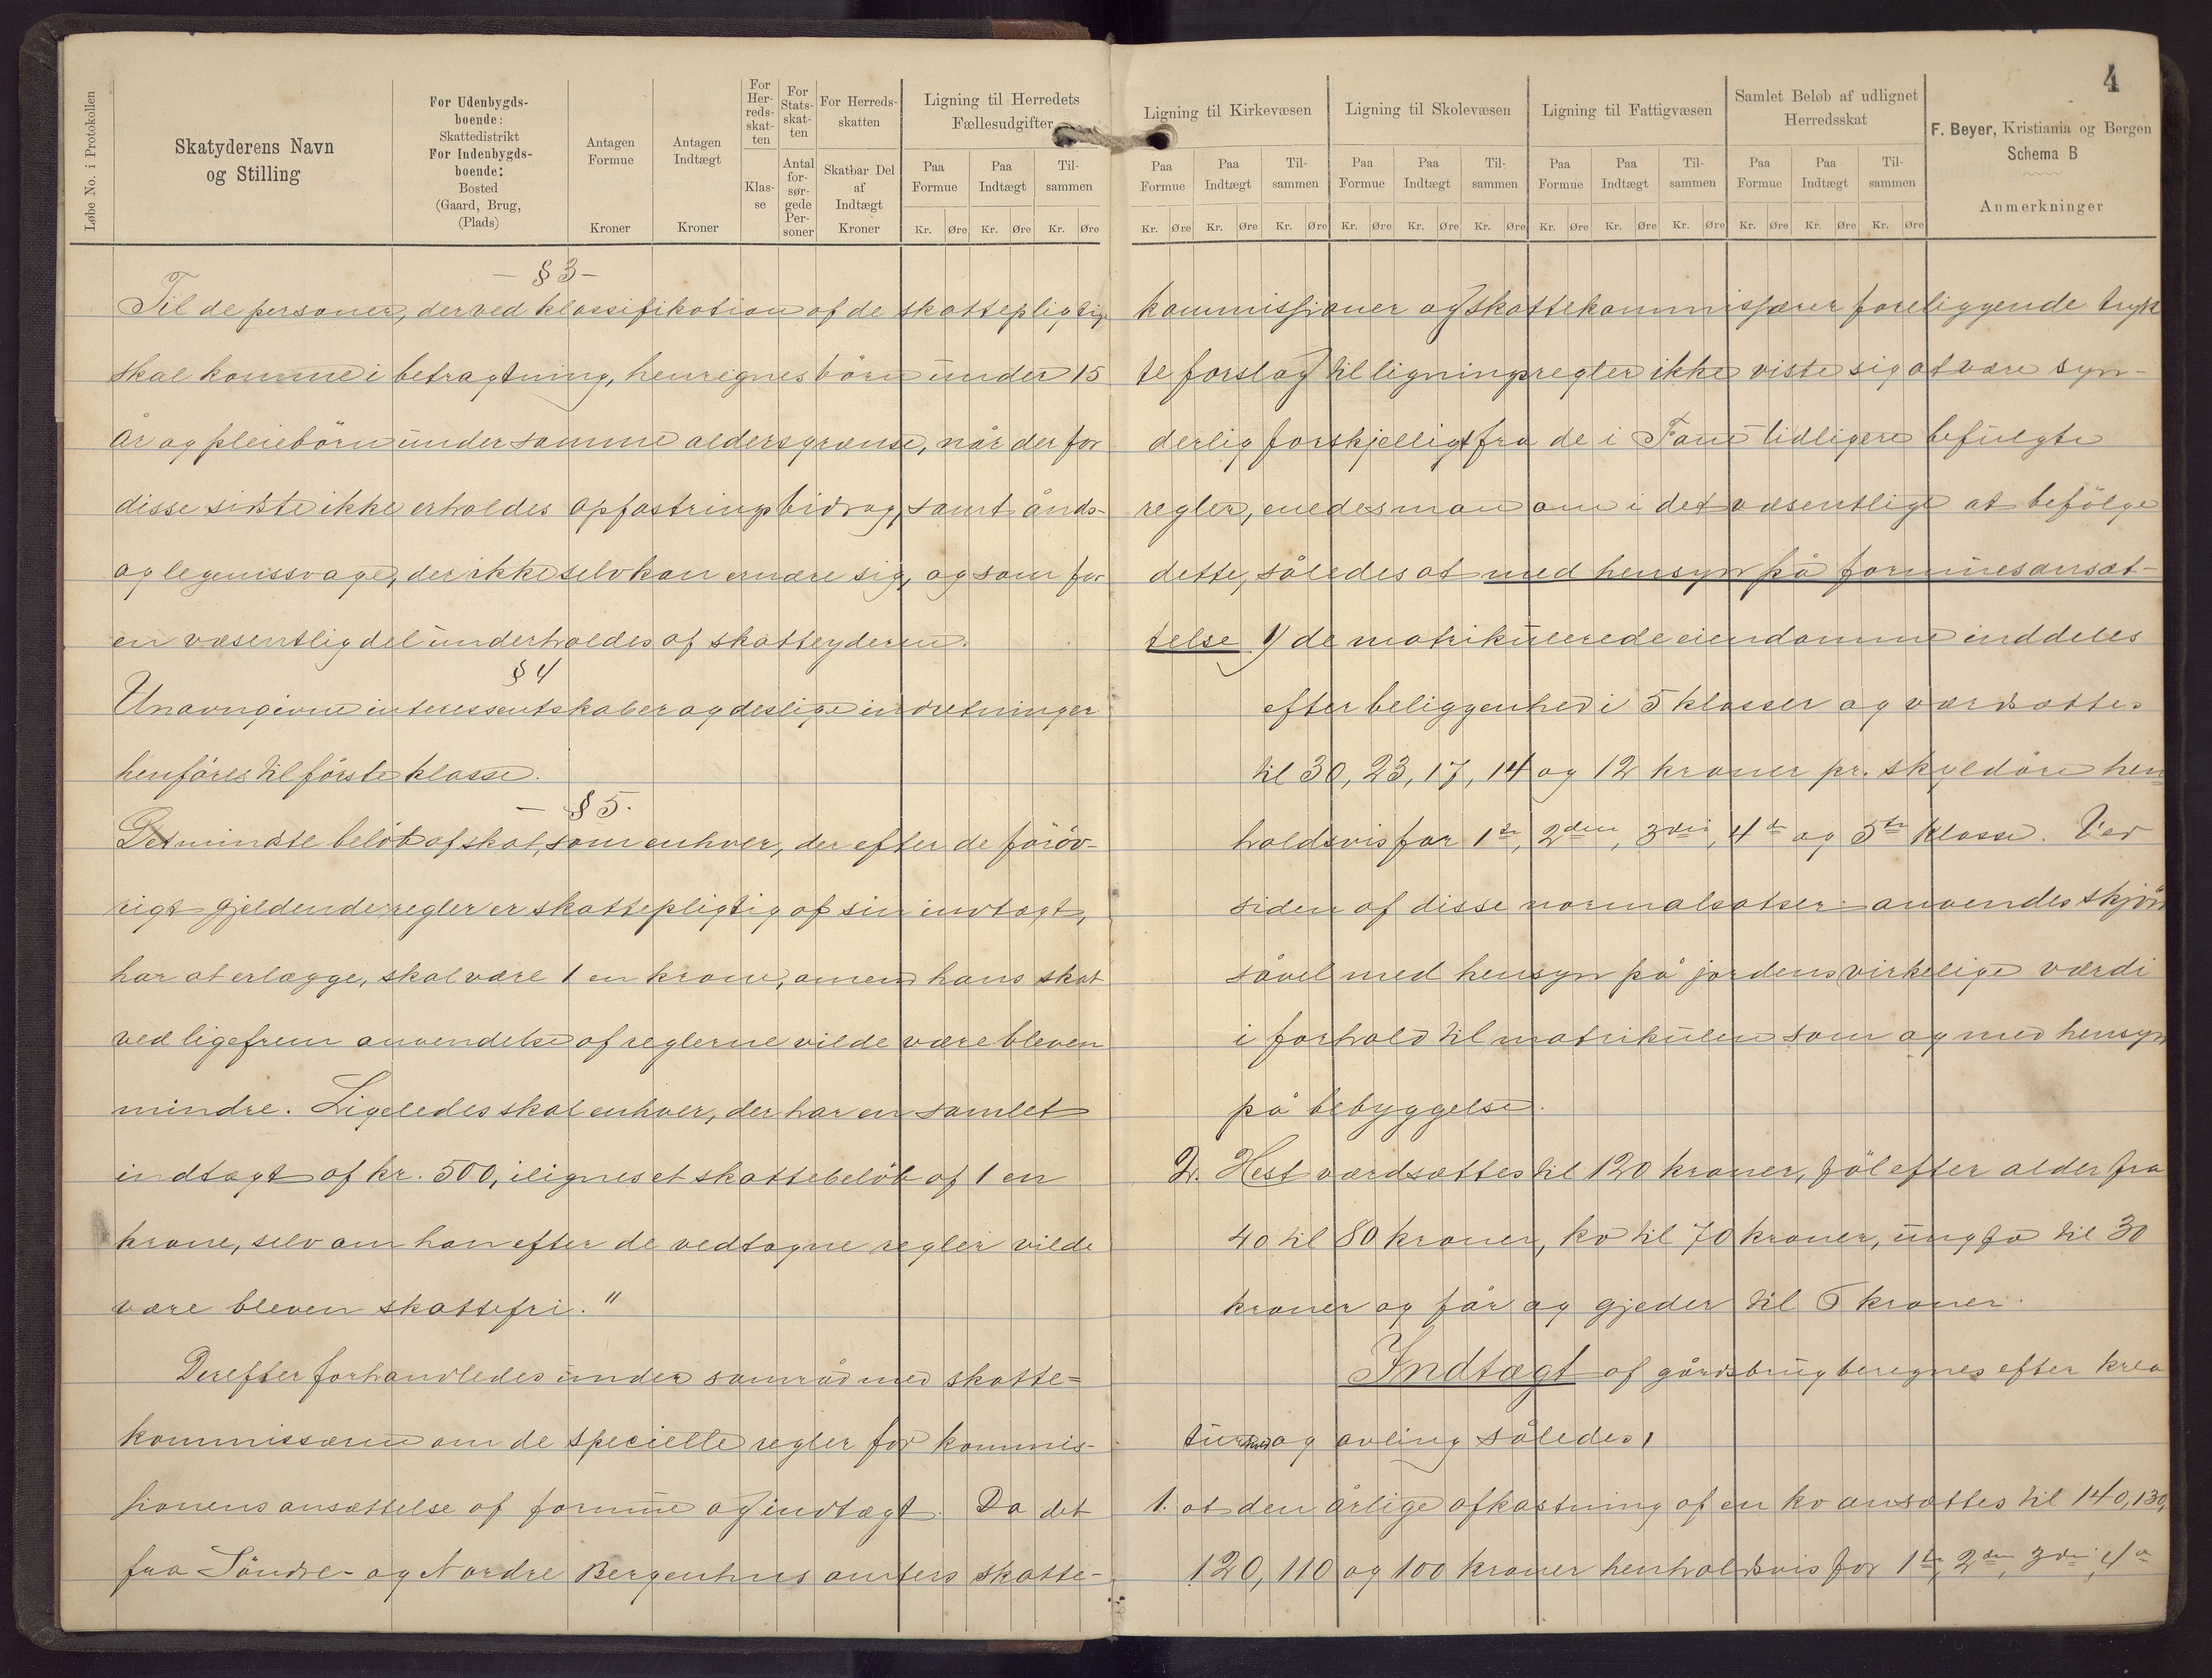 Løbe No. i Protokollen
Skatyderens Navn
og Stilling
For Udenbygds-
boende:
Skattedistrikt
For Indenbygds-
boende:
Bosted
(Gaard, Brug,
(Plads)
Antagen
Formue
Kroner
Antagen
Indtægt
Kroner
For
Her-
reds-
skat-
ten
Klas-
se
For
Stats-
skat-
ten
Antal
for-
sør-
gede
Per-
soner
For Herreds-
skatten
Skatbar Del
af
Indtægt
Kroner
Ligning til Herredets
Fællesudgifter
Paa
Formue
Paa
Indtægt
Til-
sammen
Kr. Øre Kr. Øre Kr. Øre
— § 3 —
Til de personer, der ved klassifikation af de skattepligtige
skal komme i betragtning, henregnes börn under 15
år og pleiebörn under samme aldersgrænse, når der for
disse sidste ikke erholdes opfostringsbidrag, samt ånds-
og legemssvage, der ikke selv kan ernære sig, og som for
en væsentlig del underholdes af skatteyderen.
§ 4
Unavngivne interessentskaber og deslige indretninger
henföres til förste klasse.
— § 5.
Det mindste belöb af skat, som enhver, der efter de foröv-
rigt gjeldende regler er skattepligtig af sin indtægt,
har at erlægge, skal være 1 en krone, om end hans skat
ved ligefrem anvendelse af reglerne vilde være bleven
mindre. Ligeledes skal enhver, der har en samlet
indtægt af kr. 500, ilignes et skattebelöb af 1 en
krone, selv om han efter de vedtagne regler vilde
være bleven skattefri."
Derefter forhandledes under samråd med skatte-
kommissæren om de specielle regler for kommis-
sionens ansættelse af formue og indtægt. Da det
fra Söndre- og Nordre Bergenhus amters skatte-
4
Ligning til Kirkevæsen
Paa
Formue
Paa
Indtægt
Til-
sammen
Kr. Øre Kr. Øre Kr. Øre
Ligning til Skolevæsen
Paa
Formue
Paa
Indtægt
Til-
sammen
Kr. Øre Kr. Øre Kr. Øre
Ligning til Fattigvæsen
Paa
Formue
Paa
Indtægt
Til-
sammen
Kr. Øre Kr. Øre Kr. Øre
Samlet Beløb af udlignet
Herredsskat
Paa
Formue
Paa
Indtægt
Til-
sammen
Kr. Øre Kr. Øre Kr. Øre
F. Beyer, Kristiania og Bergen
Schema B
Anmerkninger
kommissioner og skattekommissærer foreliggende tryk
te forslag til ligningsregler ikke viste sig at være syn-
derlig forskjelligt fra de i Fane tidligere befulgte
regler, enedes man om i det væsentlige at befölge
dette, således at med hensyn på formuesansæt-
telse 1) de matrikulerede eiendomme inddeles
efter beliggenhed i 5 klasser og værdsættes
til 30, 23, 17, 14 og 12 kroner pr. skyldöre hen
holdsvis for 1ste, 2den, 3die, 4de og 5te klasse. Ved
siden af disse normalsatser anvendes skjön
såvel med hensyn på jordens virkelige værdi
i forhold til matrikulen som og med hensyn
på bebyggelse.
2. Hest værdsættes til 120 kroner, föl efter alder fra
40 til 80 kroner, ko til 70 kroner, ungfæ til 30
kroner og får og gjeder til 6 kroner.
Indtægt af gårdsbrug beregnes efter krea
tur og avling således,
1. at den årlige afkastning af en ko ansættes til 140, 130,
120, 110 og 100 kroner henholdsvis for 1ste, 2den, 3die, 4de